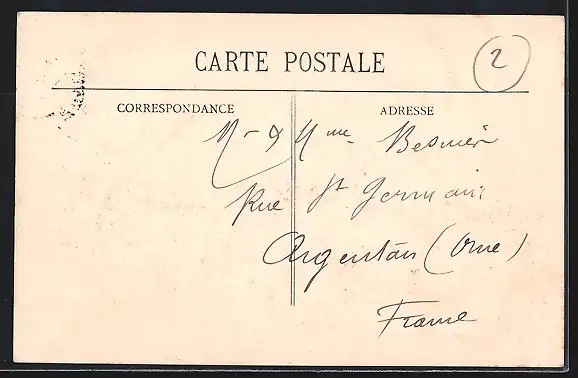 CARTE POSTALE
2
CORRESPONDANCE
ADRESSE
M - & Mme Besnier
Rue St Germain
Argentan (Orne)
France